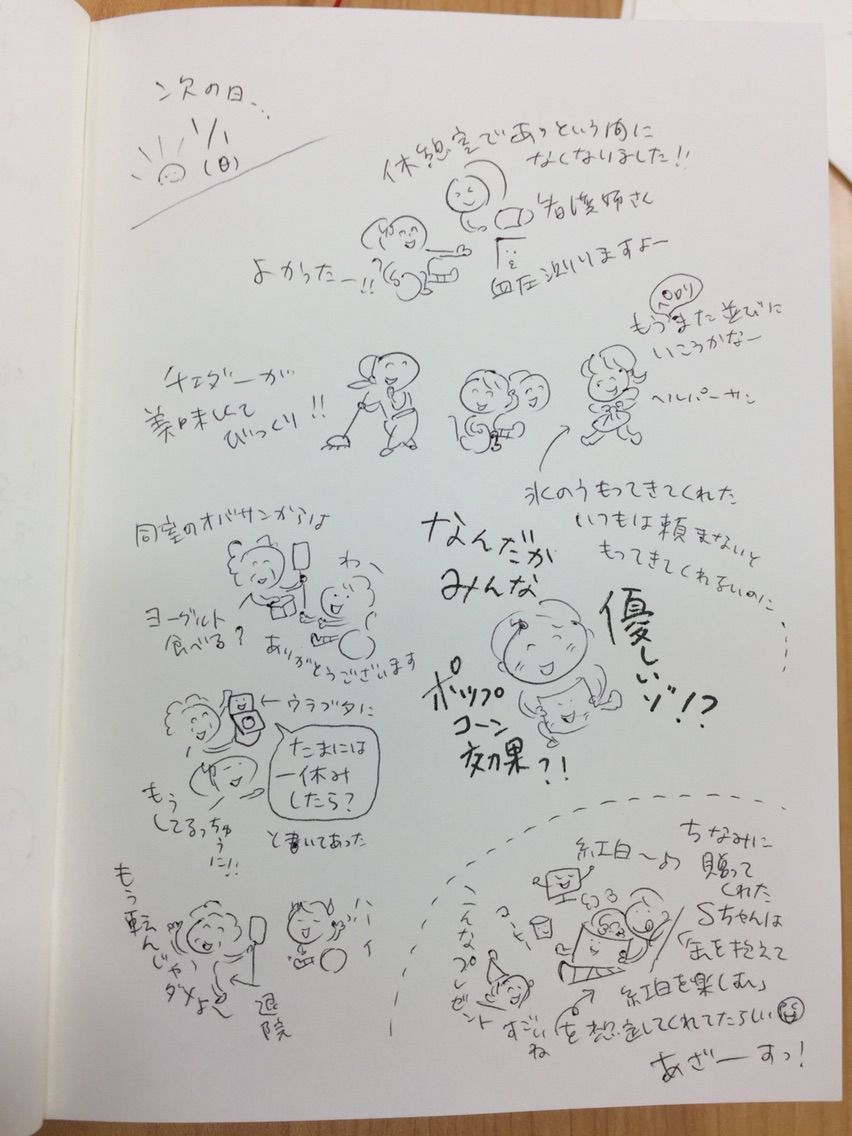 次の日...
1/1
(日)
休憩室であっという間に
なくなりました!!
看護師さん
よかったー!!
血圧測りますよー
ペロリ
もうまた並びに
いこうかなー
チェダーが
美味しくて
びっくり!!
ヘルパーサン
氷のうもってきてくれた
いつもは頼まないと
もってきてくれないのに
同室のオバサンからは
わ、
ヨーグルト
食べる?
ありがとうございます
なんだか
みんな
優しいゾ!?
ポップ
コーン
効果?!
←ウラブタに
たまには
一休み
したら?
と書いてあった
もう
してるっちゅう
に!!
もう転んじゃ
ダメよ〜
退院
ハーイ
ちなみに
贈って
くれた
Sちゃんは
「缶を抱えて
紅白を楽しむ」
を想定してくれてたらしい
あざーすっ!
紅白〜♪
こんなプレゼント
すごいね